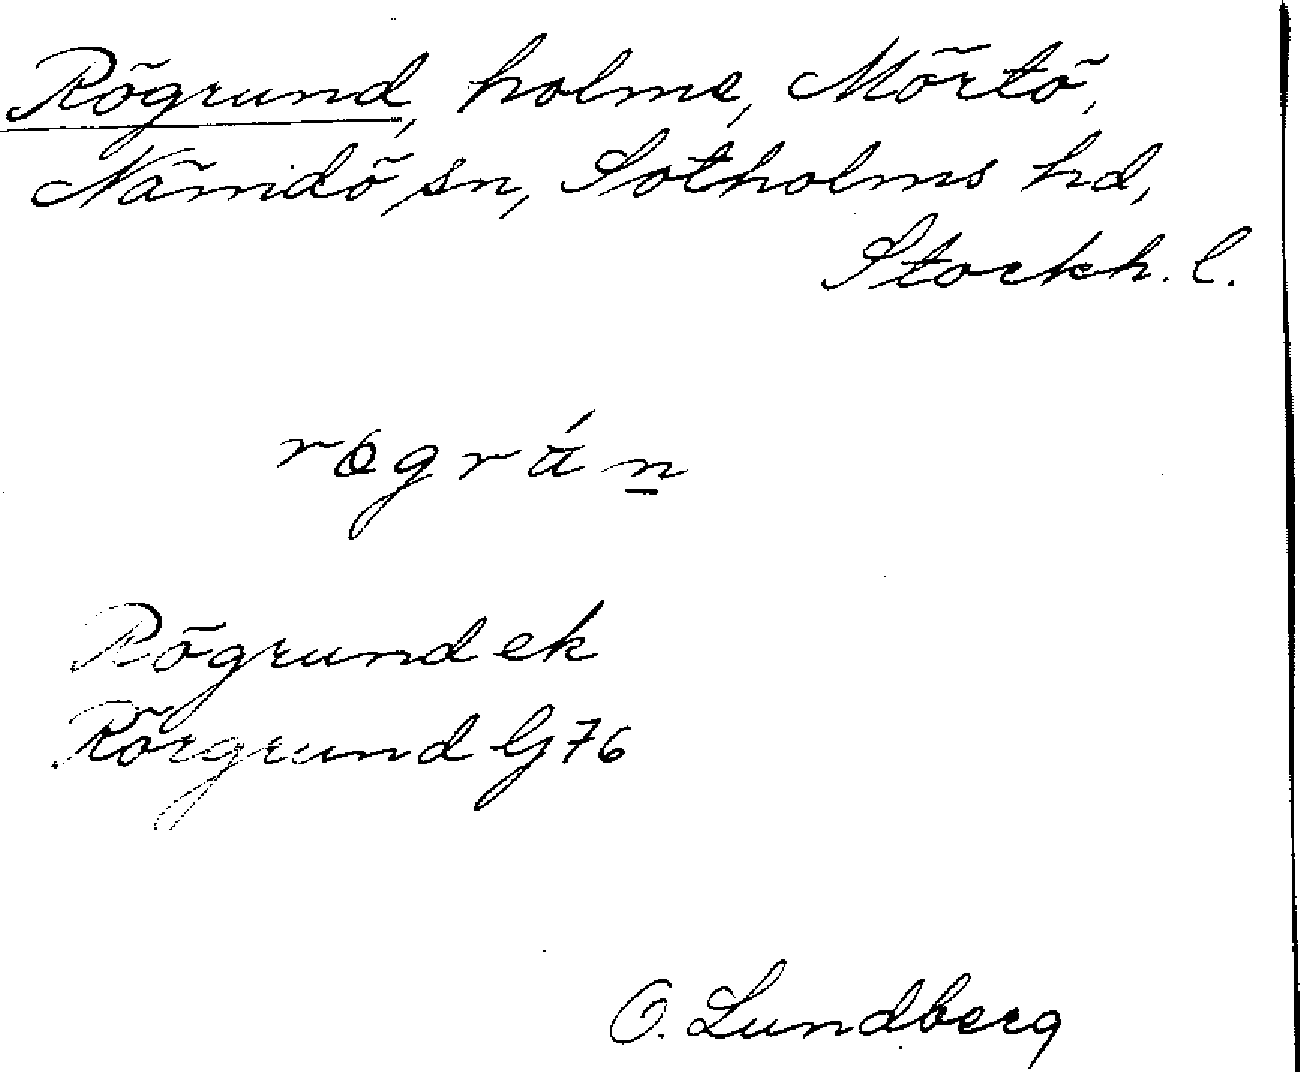 Rögrund, holme, Mörtö,
Nämdö sn, Sotholms hd,
Stockh. l.
rögrán
Rögrund ek
Rörgrund G 76
O. Lundberg